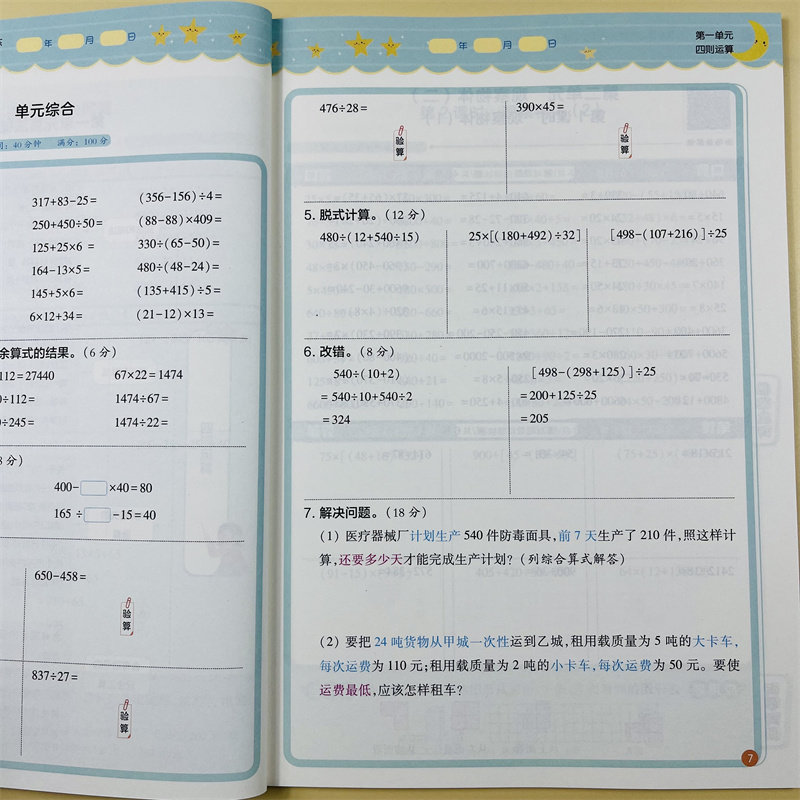 年 月 日
单元综合
40分钟 满分：100分
317+83-25=
(356-156)÷4=
250+450÷50=
(88-88)×409=
125+25×6 =
330÷(65-50)=
164-13×5=
480÷(48-24)=
145+5×6=
(135+415)÷5=
6×12+34=
(21-12)×13=
余算式的结果。(6分)
112=27440
67×22=1474
÷112=
1474÷67=
÷245=
1474÷22=
8分)
400- ×40=80
165 ÷ -15=40
650-458=
验算
837÷27=
验算
年 月 日
第一单元
四则运算
476÷28=
390×45=
验算
验算
5. 脱式计算。(12分)
480÷(12+540÷15)
25×[(180+492)÷32]
[498-(107+216)]÷25
6. 改错。(8分)
540÷(10+2)
[498-(298+125)]÷25
=540÷10+540÷2
=200+125÷25
=324
=205
7. 解决问题。(18分)
(1) 医疗器械厂计划生产540件防毒面具,前7天生产了210件,照这样计
算,还要多少天才能完成生产计划? (列综合算式解答)
(2) 要把24吨货物从甲城一次性运到乙城,租用载质量为5吨的大卡车,
每次运费为110元;租用载质量为2吨的小卡车,每次运费为50元。要使
运费最低,应该怎样租车?
7